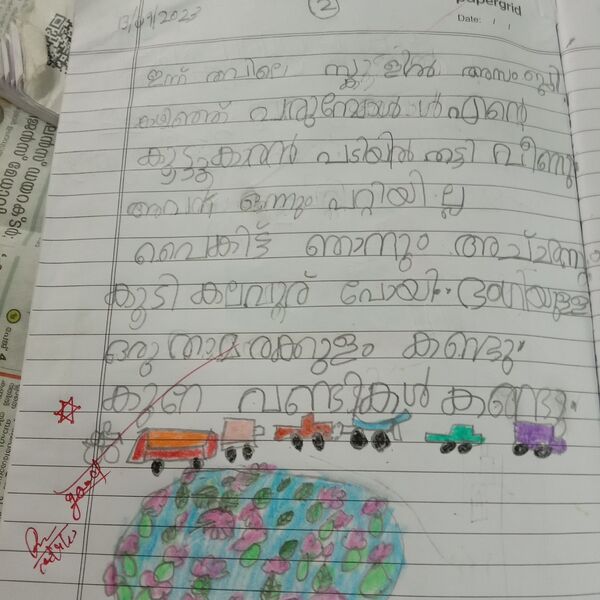 13/07/2023
2
papergrid
Date: / /
ഇന്ന് രാവിലെ സ്കൂളിൽ അസംബ്ലി
കഴിഞ്ഞ് വരുമ്പോൾ എന്റെ
കൂട്ടുകാരൻ പടിയിൽ തട്ടി വീണു
അവന് ഒന്നും പറ്റിയില്ല
വൈകിട്ട് ഞാനും അച്ഛനും
കൂടി കലവൂര് പോയി. ഭംഗിയുള്ള
ഒരു താമരക്കുളം കണ്ടു.
കുറേ വണ്ടികൾ കണ്ടു.
good